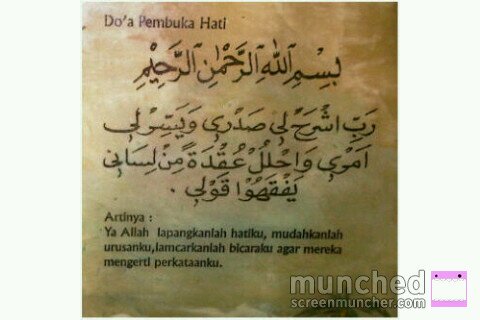 Do'a Pembuka Hati
بِسْمِ اللهِ الرَّحْمٰنِ الرَّحِيْمِ
رَبِّ اشْرَحْ لِيْ صَدْرِيْ وَيَسِّرْلِيْ
اَمْرِيْ وَاحْلُلْ عُقْدَةً مِّنْ لِسَانِيْ
يَفْقَهُوْا قَوْلِيْ .
Artinya :
Ya Allah lapangkanlah hatiku, mudahkanlah
urusanku,lamcarkanlah bicaraku agar mereka
mengerti perkataanku.
munched
screenmuncher.com